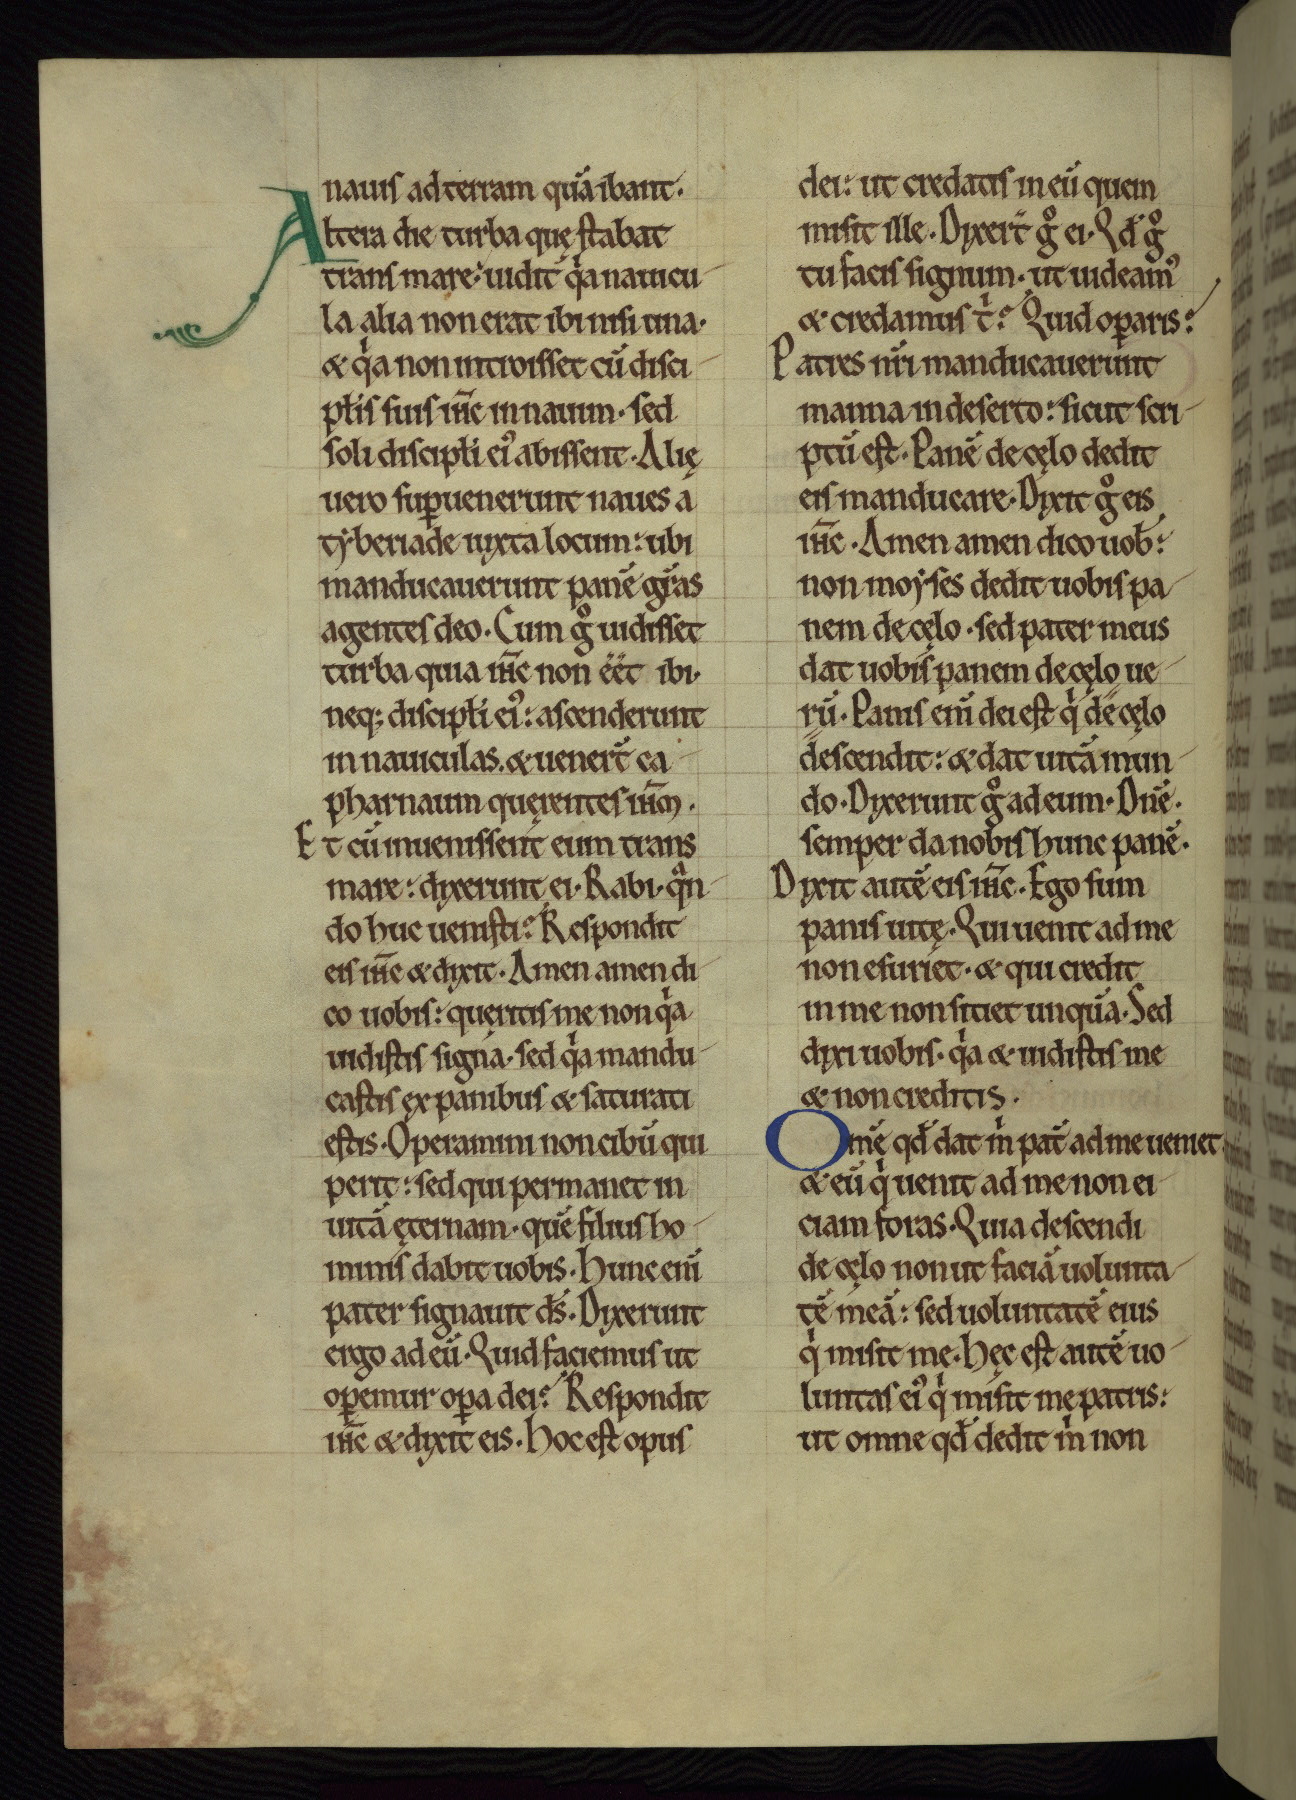 nauis ad terram quā ibant.
Altera die turba quę stabat
trans mare: uidit qͥa nauicu-
la alia non erat ibi nisi una.
& qͥa non introisset cū disci-
płis suis ihc̄ in nauim. sed
soli discipłi ei᷒ abissent. Alię
uero suꝑuenerunt naues a
tẏberiade iuxta locum: ubi
manducauerunt panē gr̄as
agentes deo. Cum gͦ uidisset
turba quia ihc̄ non eēt ibi.
neq; discipłi ei᷒: ascenderunt
in nauiculas. & uener̄t ca-
pharnaum querentes ihm̄.
Et cū inuenissent eum trans
mare: dixerunt ei. Rabi. qᷓn-
do huc uenisti? Respondit
eis ihc̄ & dixit. Amen amen di-
co uobis: queritis me non qͥa
uidistis signa. sed qͥa mandu-
castis ex panibus & saturati
estis. Operamini non cibū qui
perit: sed qui permanet in
uitā ęternam. quē filius ho-
minis dabit uobis. Hunc eni̅
pater signauit ds̄. Dixerunt
ergo ad eū. Quid faciemus ut
oꝑemur oꝑa dei? Respondit
ihc̄ & dixit eis. Hoc est opus
dei: ut credatis in eū quem
misit ille. Dixer̄t gͦ ei. Qđ gͦ
tu facis signum. ut uideam᷒
& credamus tͥ? Quid oꝑaris?
Patres nr̄i manducauerunt
manna in deserto: sicut scri-
ptū est. Panē de cęlo dedit
eis manducare. Dixit gͦ eis
ihc̄. Amen amen dico uob̄:
non moẏses dedit uobis pa-
nem de cęlo. sed pater meus
dat uobis panem de cęlo ue-
rū. Panis eni̅ dei est qͥ de cęlo
descendit: & dat uitā mun-
do. Dixerunt gͦ ad eum. Dn̄e.
semper da nobis hunc panē.
Dixit autē eis ihc̄. Ego sum
panis uitę. Qui uenit ad me
non esuriet. & qui credit
in me non sitiet unquā. Sed
dixi uobis. qͥa & uidistis me
& non creditis.
Omē qđ dat mͥ pat̄ ad me ueniet.
& eū qͥ uenit ad me non ei-
ciam foras. Quia descendi
de cęlo non ut faciā uolunta-
tē meā: sed uoluntatē eius
qͥ misit me. Hęc est autē uo-
luntas ei᷒ qͥ misit me patris:
ut omne qđ dedit mͥ non